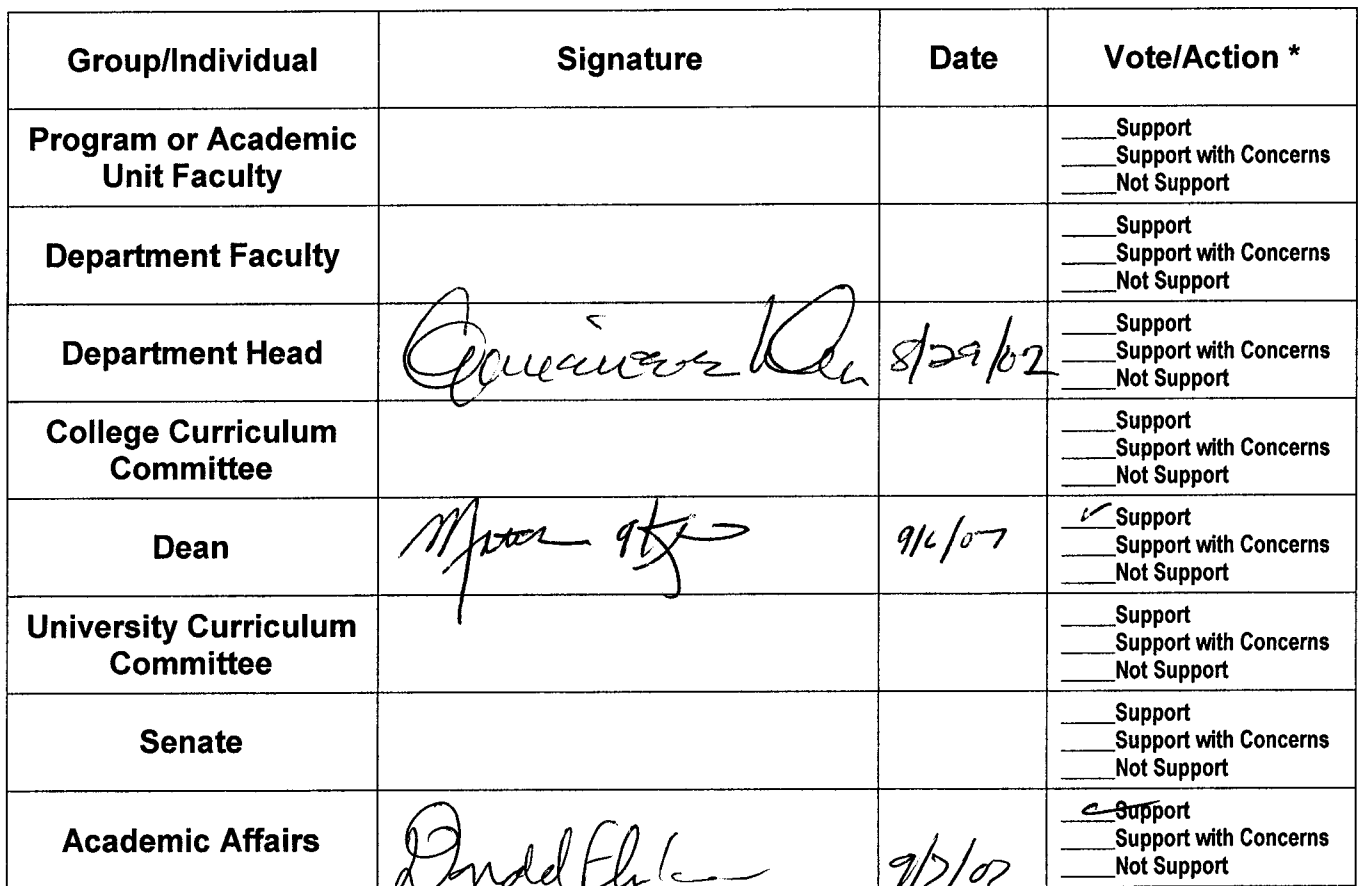 Group/Individual Signature Date Vote/Action *
Program or Academic
Unit Faculty
____Support
____Support with Concerns
____Not Support
Department Faculty
____Support
____Support with Concerns
____Not Support
Department Head 8/29/07
____Support
____Support with Concerns
____Not Support
College Curriculum
Committee
____Support
____Support with Concerns
____Not Support
Dean 9/6/07
✓Support
____Support with Concerns
____Not Support
University Curriculum
Committee
____Support
____Support with Concerns
____Not Support
Senate
____Support
____Support with Concerns
____Not Support
Academic Affairs 9/7/07
Support
____Support with Concerns
____Not Support